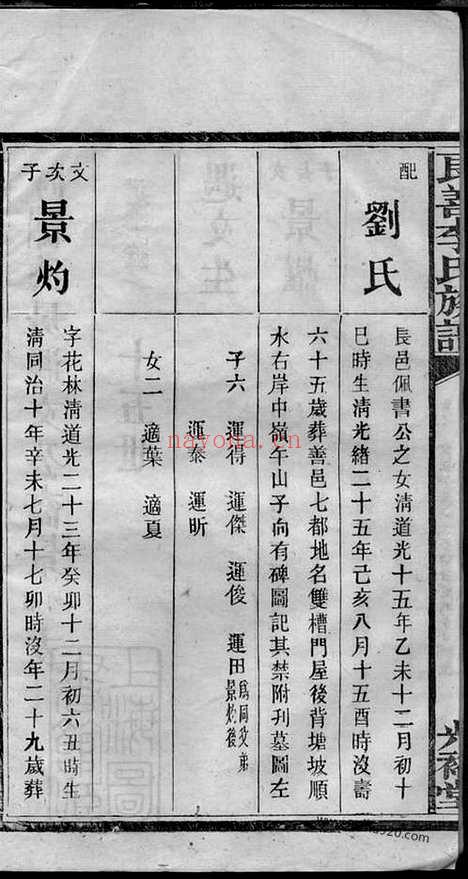 長善李氏族譜
配
劉氏
長邑佩書公之女清道光十五年乙未十二月初十
巳時生清光緒二十五年己亥八月十五酉時沒壽
六十五歲葬善邑七都地名雙槽門屋後背塘坡順
水右岸中嶺午山子向有碑圖記其禁附刊墓圖左
子六 運得 運傑 運俊 運田為同父弟景灼後
運泰 運昕
女二 適葉 適夏
文次子
景灼
字花林清道光二十三年癸卯十二月初六丑時生
清同治十年辛未七月十七卯時沒年二十九歲葬
nayona.cn